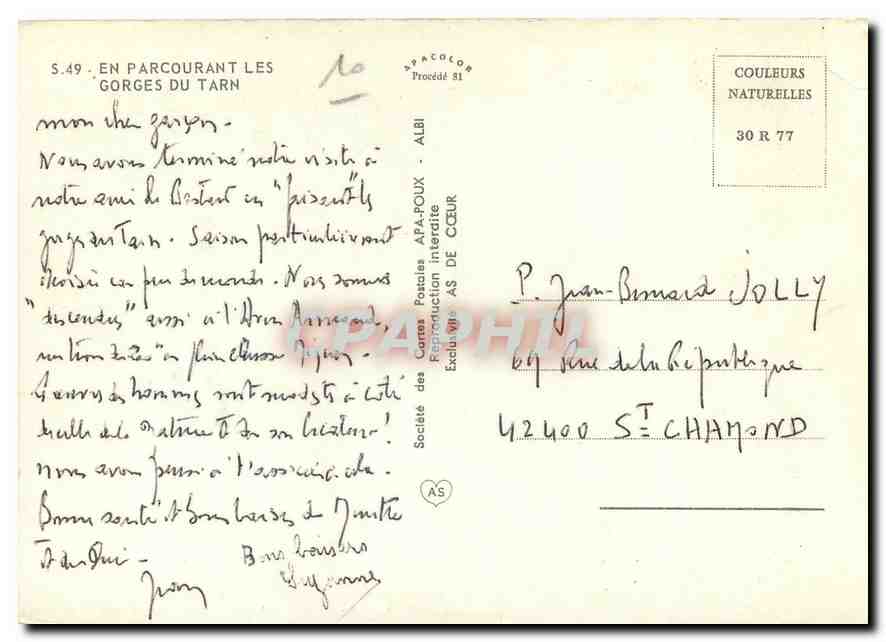 S.49 - EN PARCOURANT LES
GORGES DU TARN
10
APACOLOR
Procédé 81
COULEURS
NATURELLES
30 R 77
mon cher garçon.
Nous avons terminé notre visite à
notre ami de en "faisant" les
gorges du Tarn. Saison particulièrement
choisie car peu de monde. Nous sommes
"descendus" aussi à l'Aven Armand,
en plein Causse Méjean.
des hommes sont modestes à côté
de celles de la Nature et de son Créateur!
nous avons pensé à t'associer à cela.
Bonne santé et bons baisers de
et de
Bons baisers
Suzanne
Jean
Société des Cartes Postales APA-POUX - ALBI
Reproduction interdite
Exclusivité AS DE CŒUR
AS
P. Jean-Bernard JOLLY
69 Rue de la République
42400 ST CHAMOND
CPAPHIL